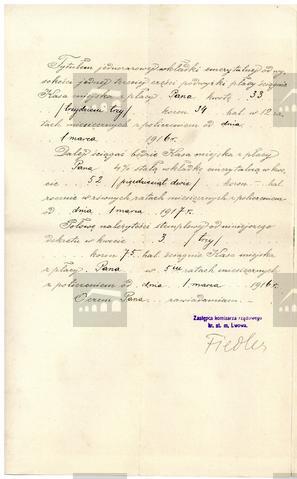 Tytułem jednorazowej wkładki emerytalnej od wy-
sokości jednej trzeciej części podwyżki płacy ściągnie
Kasa miejska z płacy Pana kwotę 33
/trzydzieści trzy/ koron 34 hal. w 12 ra-
tach miesięcznych z potrąceniem od dnia
1 marca 1916 r.
Dalej ściągać będzie Kasa miejska z płacy
Pana 4% stałą wkładkę emerytalną w kwo-
cie 52 /pięćdziesiąt dwie/ koron – hal.
rocznie w równych ratach miesięcznych z potrąceniem
od dnia 1 marca 1917 r.
Połowę należytości stemplowej od niniejszego
dekretu w kwocie 3 /trzy/
koron 75 hal. ściągnie Kasa miejska
z płacy Pana w 5 ciu ratach miesięcznych
z potrąceniem od dnia 1 marca 1916 r.
O czem Pana zawiadamiam.
Zastępca komisarza rządowego
kr. st. m. Lwowa.
Fiedler